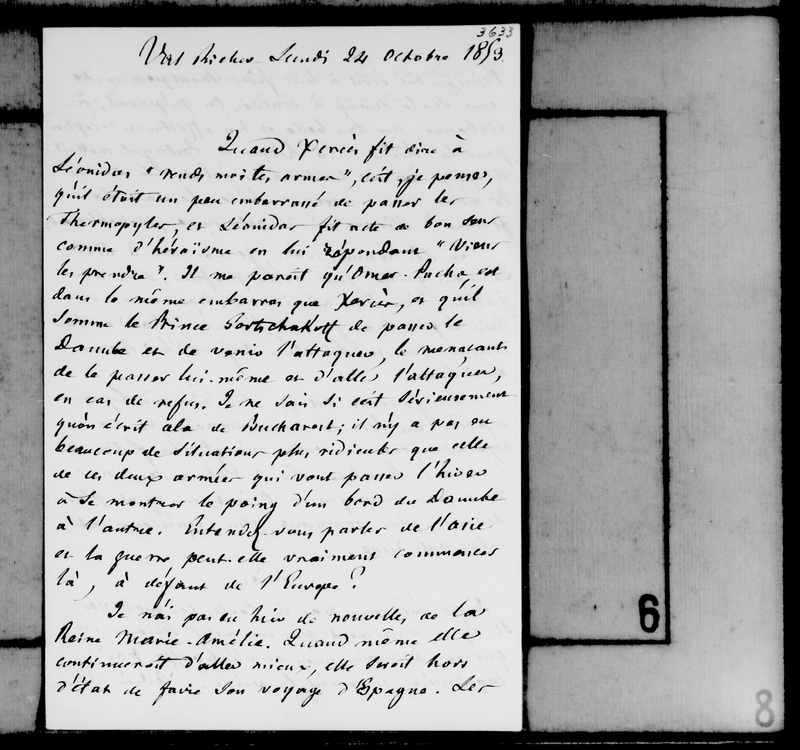 3633
Val Richer Lundi 24 Octobre 1853
Quand Xercès fit dire à
Léonidas "rends moi tes armes", c'est, je pense,
qu'il étoit un peu embarrassé de passer les
Thermopyles, et Léonidas fit acte de bon sens
comme d'héroïsme en lui répondant "Viens
les prendre". Il me paroît qu'Omer-Pacha est
dans le même embarras que Xercès, et qu'il
somme le Prince Gortschakoff de passer le
Danube et de venir l'attaquer, le menaçant
de le passer lui-même et d'aller l'attaquer,
en cas de refus. Je ne sais si c'est sérieusement
qu'on écrit cela de Bucharest; il n'y a pas eu
beaucoup de situations plus ridicules que celle
de ces deux armées qui vont passer l'hiver
à se montrer le poing d'un bord du Danube
à l'autre. Entendez-vous parler de l'Asie
et la guerre peut-elle vraiment commencer
là, à défaut de l'Europe?
Je n'ai pas eu hier de nouvelles de la
Reine Marie-Amélie. Quand même elle
continueroit d'aller mieux, elle seroit hors
d'état de faire son voyage d'Espagne. Les
6
8